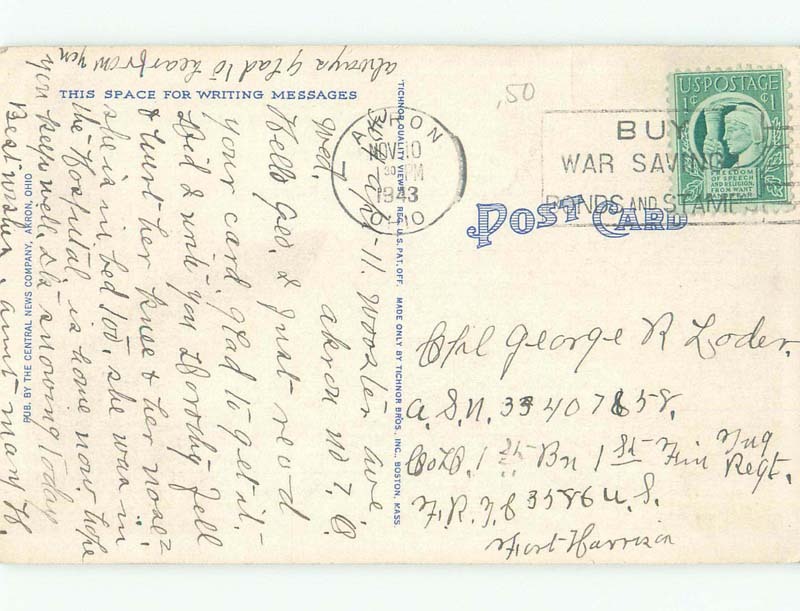 THIS SPACE FOR WRITING MESSAGES
11. Wooster ave.
akron no 7. O.
Wed.
Hello Geo. I just rec'd
your card. glad to get it.
Did I write you Dorothy fell
& hurt her knee & her nose?
she is in bed too. she was in
the Hospital. is home now. hope
you keep well. It's snowing today
Best wishes, aunt mary H.
always glad to hear from you
PUB. BY THE CENTRAL NEWS COMPANY, AKRON, OHIO
"TICHNOR QUALITY VIEWS," REG. U. S. PAT. OFF. MADE ONLY BY TICHNOR BROS., INC., BOSTON, MASS.
.50
AKRON
NOV 10
30 PM
1943
OHIO
BUY
WAR SAVINGS
BONDS AND STAMPS
U.S. POSTAGE
1¢ ¢1
FREEDOM
OF SPEECH
AND RELIGION,
FROM WANT
AND FEAR
POST CARD
Cpl George R Loder.
a. S. N. 33407658.
Co. 1st Bn 1st Regt.
3586 U. S.
Fort Harrison